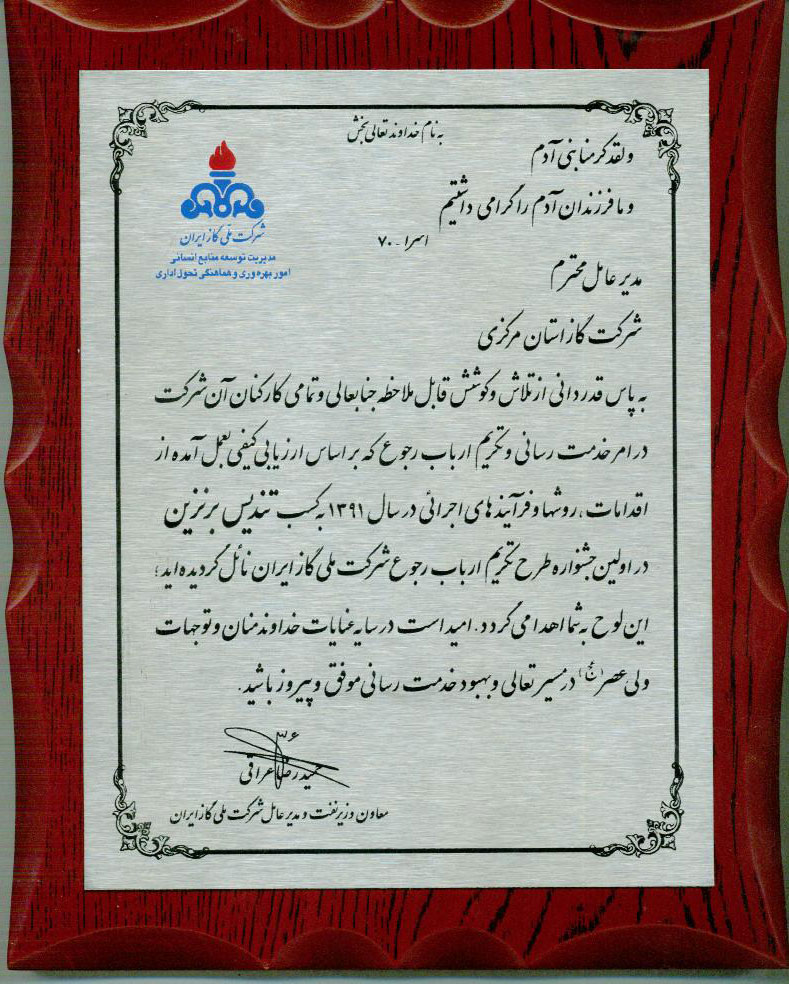 به نام خداوند تعالی بخش
ولقد کرمنا بنی آدم
و ما فرزندان آدم را گرامی داشتیم
اسرا - ۷۰
شرکت ملی گاز ایران
مدیریت توسعه منابع انسانی
امور بهره وری و هماهنگی تحول اداری
مدیر عامل محترم
شرکت گاز استان مرکزی
به پاس قدردانی از تلاش و کوشش قابل ملاحظه جنابعالی و تمامی کارکنان آن شرکت
در امر خدمت رسانی و تکریم ارباب رجوع که بر اساس ارزیابی کیفی بعمل آمده از
اقدامات، روشها و فرآیندهای اجرائی در سال ۱۳۹۱ به کسب تندیس برنزین
در اولین جشنواره طرح تکریم ارباب رجوع شرکت ملی گاز ایران نائل گردیده اید؛
این لوح به شما اهدا می گردد. امید است در سایه عنایات خداوند منان و توجهات
ولی عصر (عج) در مسیر تعالی و بهبود خدمت رسانی موفق و پیروز باشید.
حمیدرضا عراقی
معاون وزیر نفت و مدیر عامل شرکت ملی گاز ایران